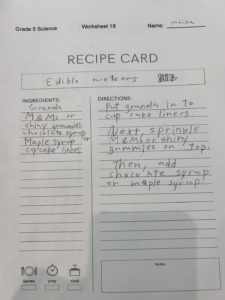 Grade 5 Science
Worksheet 18
Name:
RECIPE CARD
Edible meteors
INGREDIENTS:
Granola
M&Ms or
shiny gummies
chocolate syrup
Maple syrup
cupcake liners
DIRECTIONS:
Put granola in to
cup cake liners
Next, sprinkle
M&Ms or shiny
gummies on top.
Then, add
chocolate syrup
or maple syrup!
Serves
prep
cook
Notes